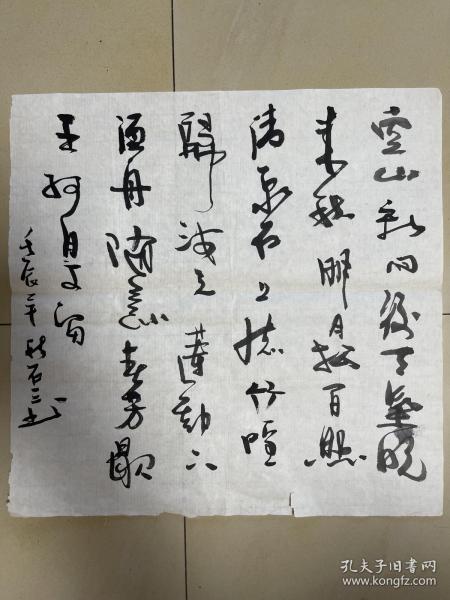 空山新雨後天氣晚
来秋明月松间照
清泉石上流竹喧
歸浣女蓮動下
渔舟随意春芳歇
王孙自可留
壬辰年秋石三书
孔夫子旧书网
www.kongfz.com